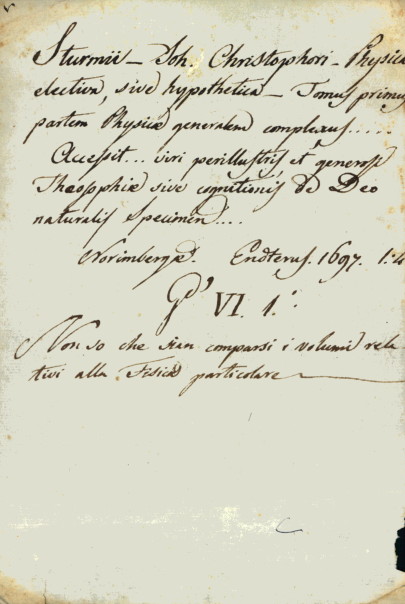 Sturmii – Joh. Christophori – Physica
electiva, sive hypothetica – Tomus primus
partem Physicæ generalem complexus.....
Accessit... viri perillustris et generosi
Theosophiæ sive cognitionis de Deo
naturalis Specimen....
Norimbergæ. Endterus. 1697. 1:4
VI. 1.
Non so che sian comparsi i volumi rela
tivi alla Fisica particolare